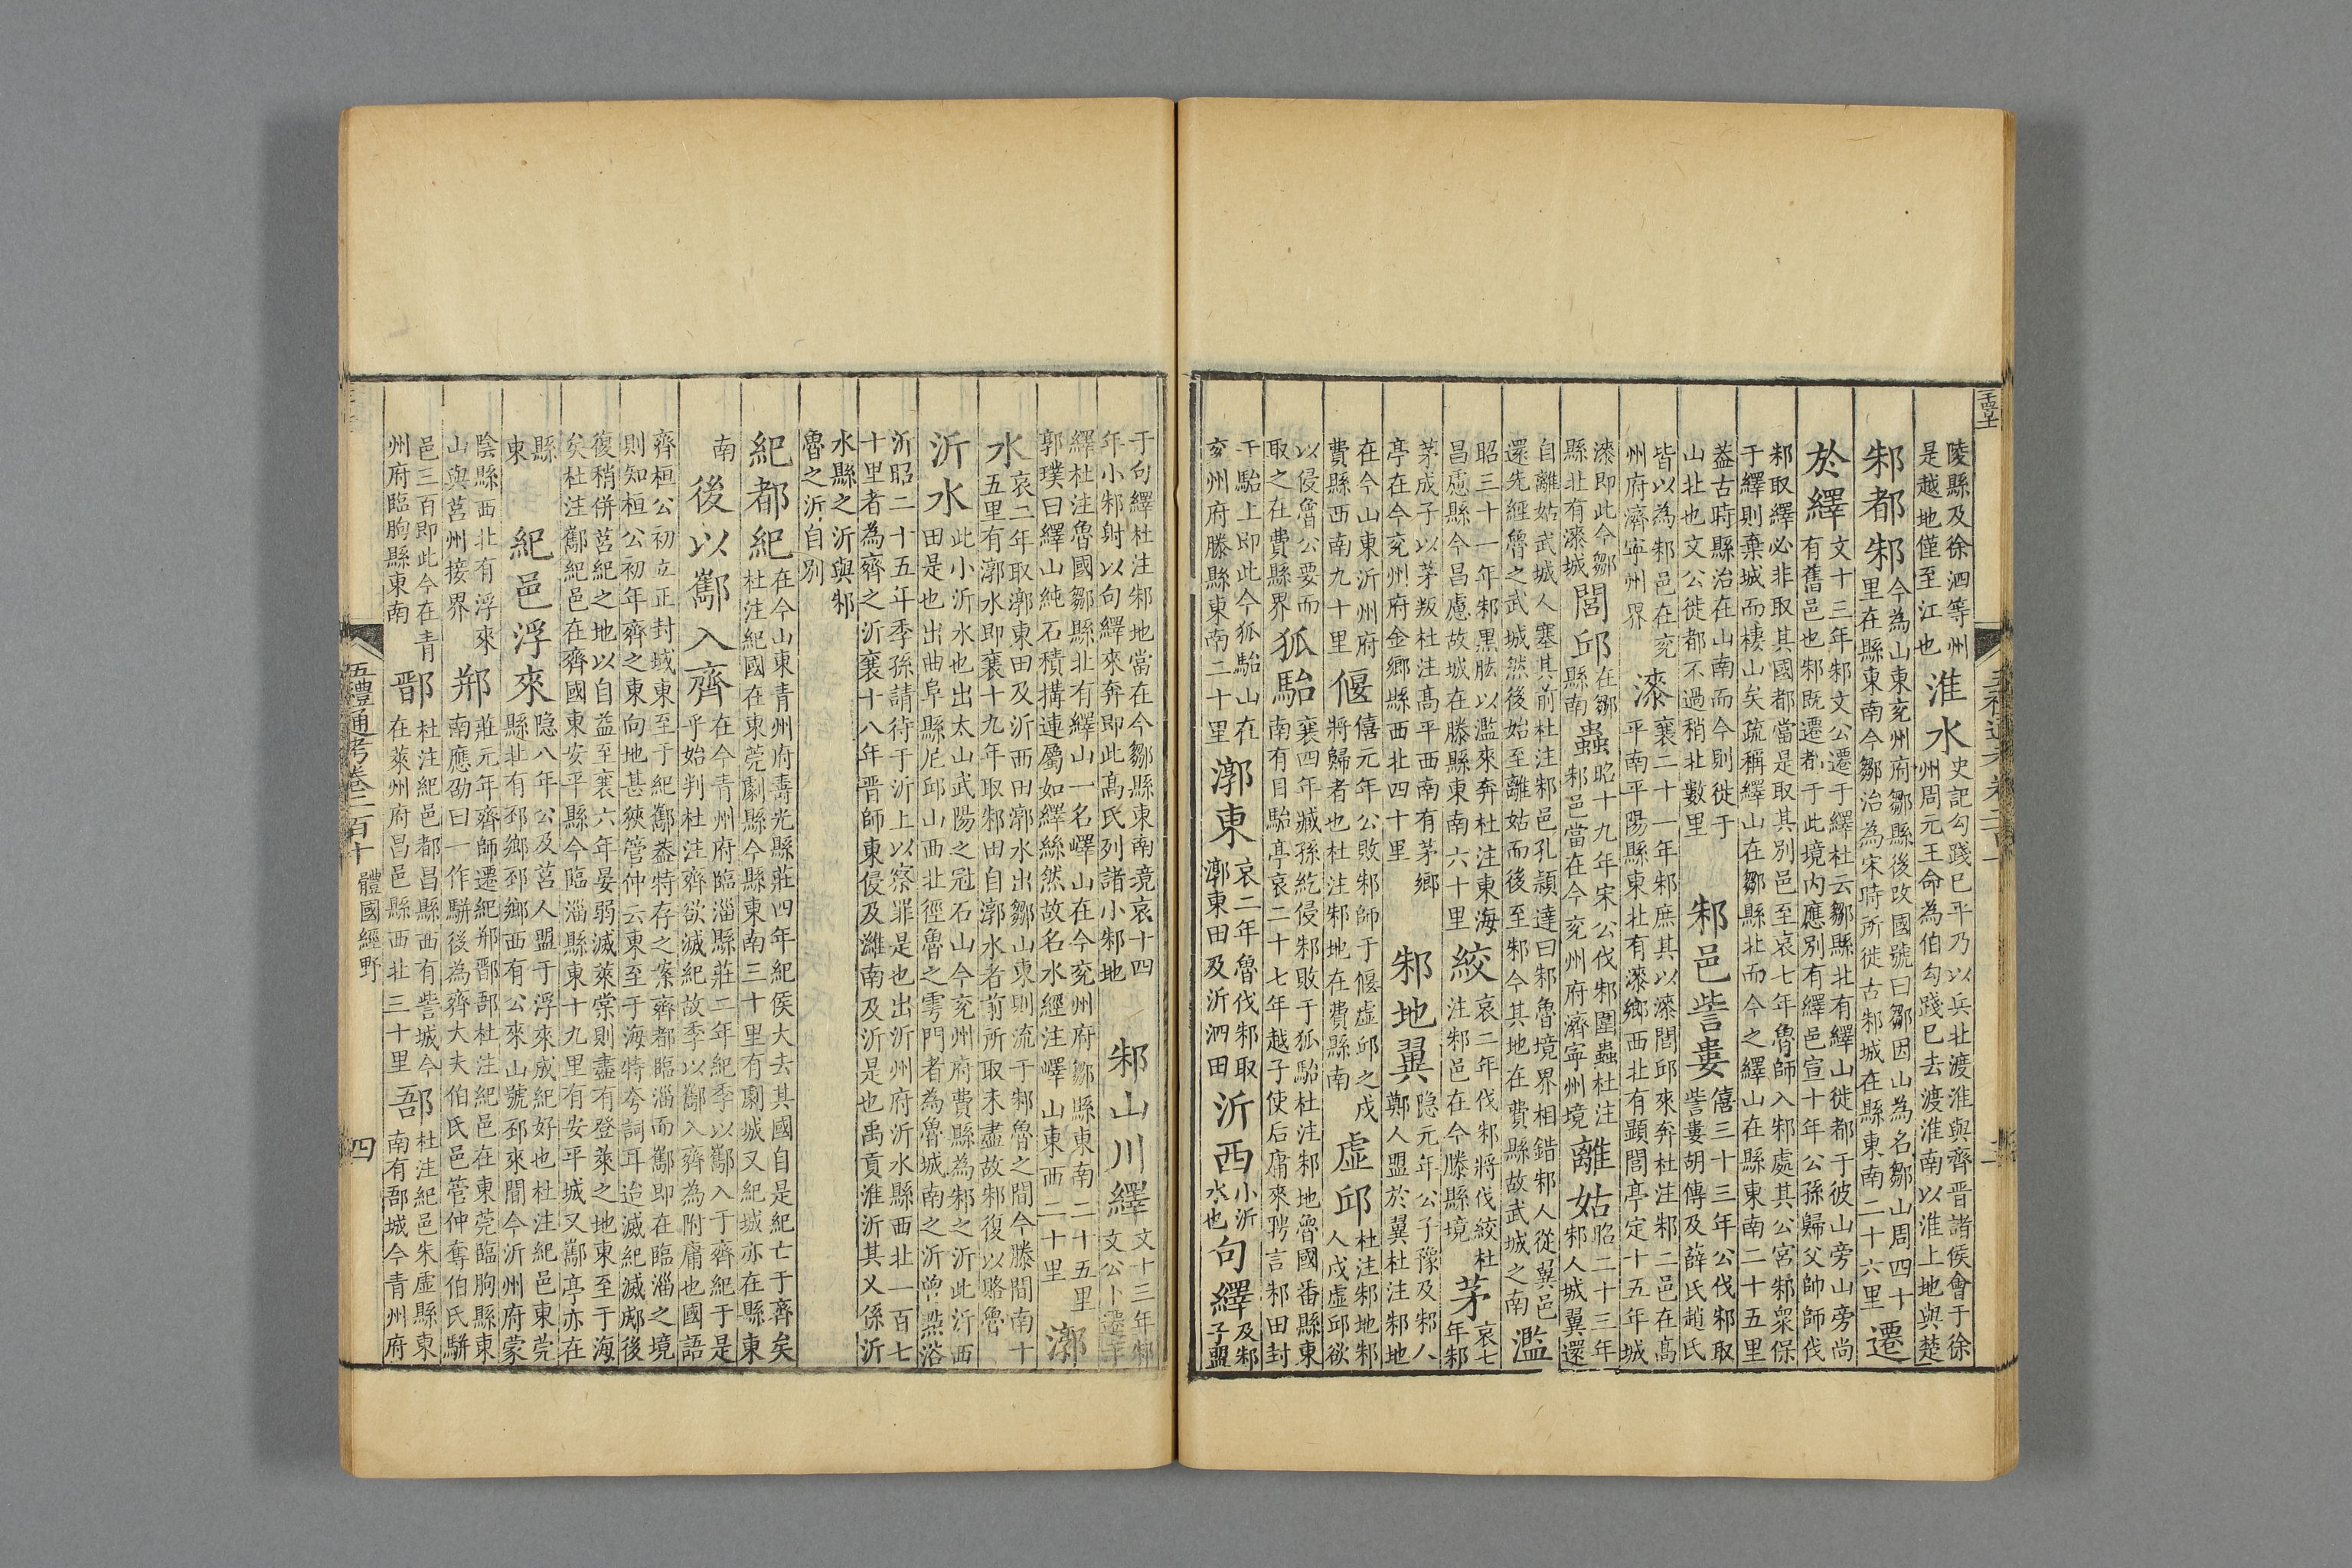 陵縣及徐泗等州是越地僅至江也淮水史記勾踐已平乃以兵北渡淮與齊晋諸侯會于徐州周元王命為伯勾踐已去渡淮南以淮上地與楚
邾都邾今為山東兖州府鄒縣後改國號曰鄒因山為名鄒山周四十里在縣東南今鄒治為宋時所徙古邾城在縣東南二十六里遷
於繹文十三年邾文公遷于繹杜云鄒縣北有繹山徙都于彼山旁山旁尚有舊邑也邾既遷都于此境内應別有繹邑宣十年公孫歸父帥師伐
邾取繹必非取其國都當是取其別邑至哀七年魯師入邾處其公宮邾衆保于繹則棄城而棲山矣疏稱繹山在鄒縣北而今之繹山在縣東南二十五里
葢古時縣治在山南而今則徙于山北也文公徙都不過稍北數里邾邑訾婁僖三十三年公伐邾取訾婁胡傳及薛氏趙氏
皆以為邾邑在兖州府濟寧州界漆襄二十一年邾庶其以漆閭邱來奔杜注邾二邑在高平南平陽縣東北有漆鄉西北有顕閭亭定十五年城
漆即此今鄒縣北有漆城閭邱在鄒縣南蟲昭十九年宋公伐邾圍蟲杜注邾邑當在今兖州府濟寧州境離姑昭二十三年邾人城翼還
自離姑武城人塞其前杜注邾邑孔頴達曰邾魯境界相錯邾人從翼邑還先經魯之武城然後始至離姑而後至邾今其地在費縣故武城之南濫
昭三十一年邾黑肱以濫來奔杜注東海昌慮縣今昌慮故城在滕縣東南六十里絞哀二年伐邾將伐絞杜注邾邑在今滕縣境茅哀七年邾
茅成子以茅叛杜注高平西南有茅鄉亭在今兖州府金鄉縣西北四十里邾地翼隐元年公子豫及邾人鄭人盟於翼杜注邾地
在今山東沂州府費縣西南九十里偃僖元年公敗邾師于偃虛邱之戍將歸者也杜注邾地在費縣南虛邱杜注邾地邾人戍虛邱欲
以侵魯公要而取之在費縣界狐駘襄四年臧孫紇侵邾敗于狐駘杜注邾地魯國番縣東南有目駘亭哀二十七年越子使后庸來聘言邾田封
于駘上即此今狐駘山在兖州府滕縣東南二十里漷東哀二年魯伐邾取漷東田及沂泗田沂西小沂水也句繹及邾子盟
于句繹杜注邾地當在今鄒縣東南境哀十四年小邾射以句繹來奔即此高氏列諸小邾地邾山川繹文十三年邾文公卜遷于
繹杜注魯國鄒縣北有繹山一名嶧山在今兖州府鄒縣東南二十五里郭璞曰繹山純石積搆連屬如繹絲然故名水經注嶧山東西二十里漷
水哀二年取漷東田及沂西田漷水出鄒山東則流于邾魯之間今滕間南十五里有漷水即襄十九年取邾田自漷水者前所取未盡故邾復以賂魯
沂水此小沂水也出太山武陽之冠石山今兖州府費縣為邾之沂此沂西田是也出曲阜縣尼邱山西北徑魯之雩門者為魯城南之沂曾㸃浴
沂昭二十五年季孫請待于沂上以察罪是也出沂州府沂水縣西北一百七十里者為齊之沂襄十八年晋師東侵及濰南及沂是也禹貢淮沂其乂係沂
水縣之沂與邾魯之沂自別
紀都紀在今山東青州府壽光縣莊四年紀侯大去其國自是紀亡于齊矣杜注紀國在東莞劇縣今縣東南三十里有劇城又紀城亦在縣東
南後以酅入齊在今青州府臨淄縣莊二年紀季以酅入于齊紀于是乎始判杜注齊欲滅紀故季以酅入齊為附庸也國語
齊桓公初立正封域東至于紀酅葢特存之案齊都臨淄而酅即在臨淄之境則知桓公初年齊之東向地甚狹管仲云東至于海特夸詞耳迨滅紀滅郕後
復稍併莒紀之地以自益至襄六年晏弱滅萊棠則盡有登萊之地東至于海矣杜注酅紀邑在齊國東安平縣今臨淄縣東十九里有安平城又酅亭亦在
縣東紀邑浮來隐八年公及莒人盟于浮來成紀好也杜注紀邑東莞縣北有邳鄉邳鄉西有公來山號邳來間今沂州府蒙
陰縣西北有浮來山與莒州接界郱莊元年齊師遷紀郱鄑郚杜注紀邑在東莞臨朐縣東南應劭曰一作駢後為齊大夫伯氏邑管仲奪伯氏駢
邑三百即此今在青州府臨朐縣東南鄑杜注紀邑都昌縣西有訾城今在萊州府昌邑縣西北三十里郚杜注紀邑朱虛縣東南有郚城今青州府
五禮通考卷二百十 體國經野 四